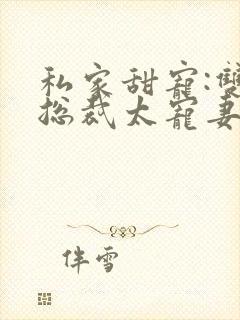 私家甜宠:雙
总裁太宠妻
伴雪